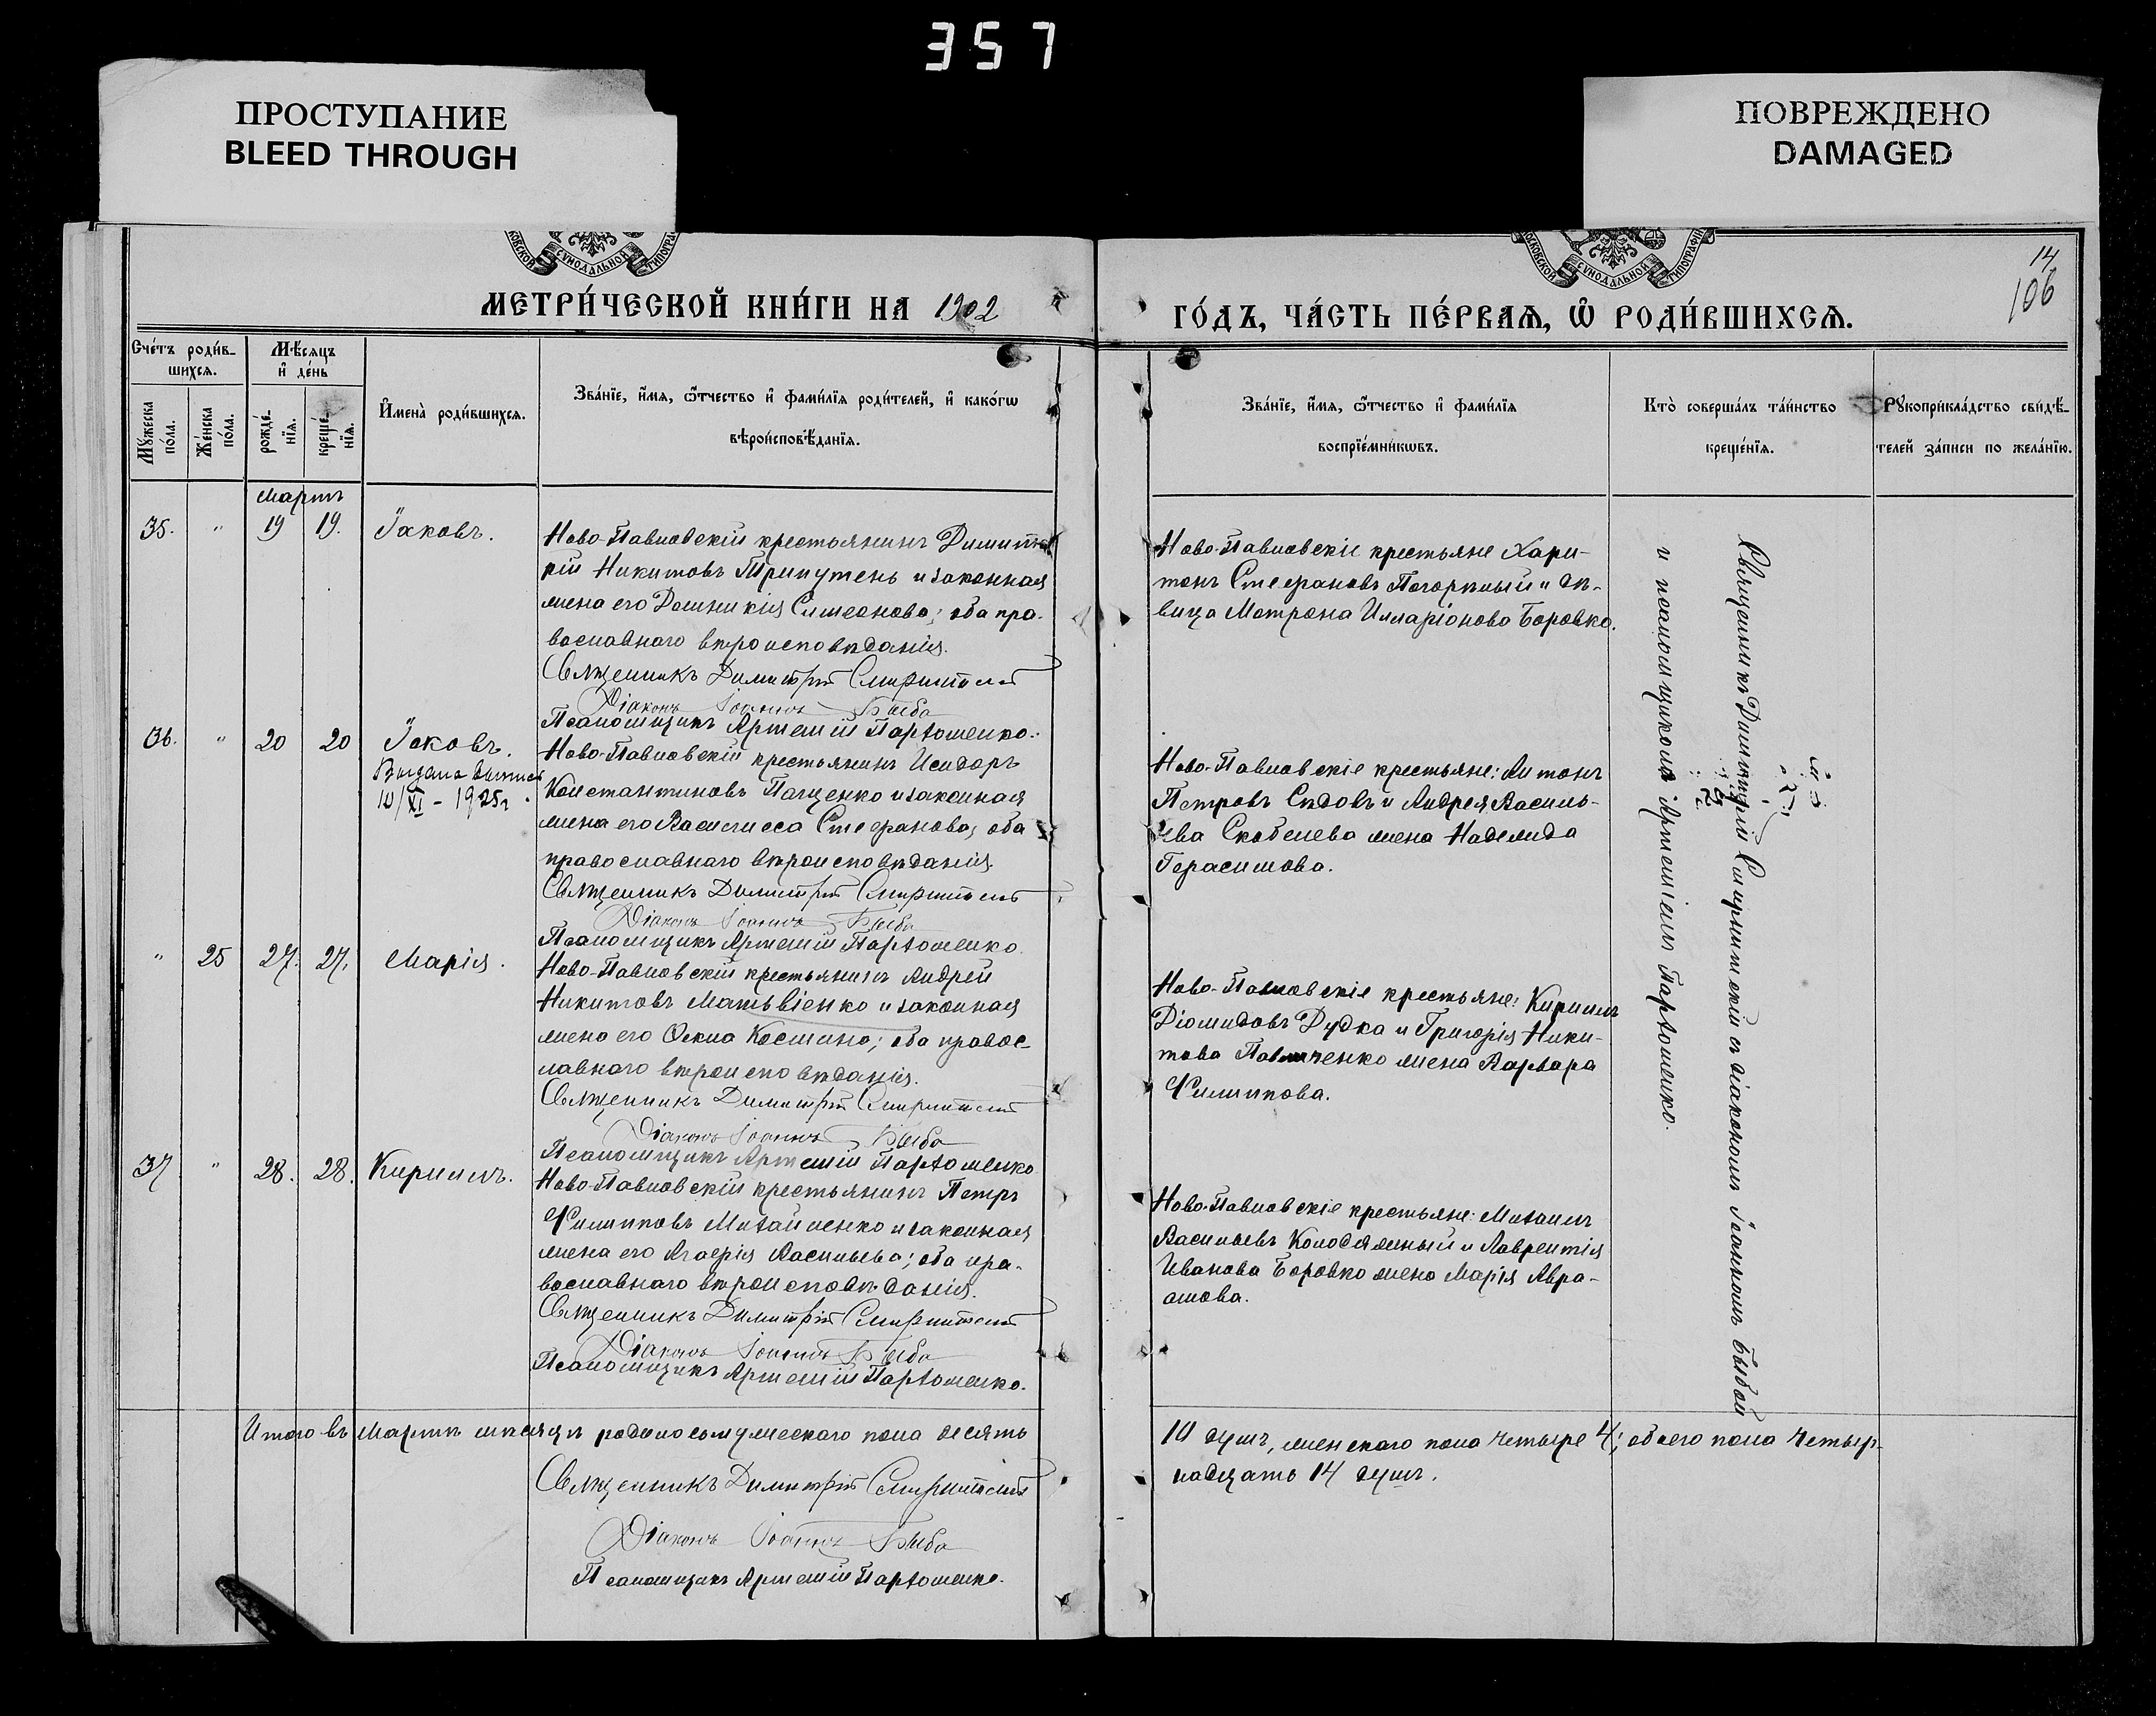 357
ПРОСТУПАНИЕ
BLEED THROUGH
ПОВРЕЖДЕНО
DAMAGED
МЕТРИ́ЧЕСКОЙ КНИ́ГИ НА 1902
ГО́ДЪ, ЧА́СТЬ ПЕ́РВАѦ, Ѡ҆ РОДИ́ВШИХСѦ.
14
106
Сче́тъ роди́в-
шихсѧ.
Мѣ́сѧцъ
и҆ де́нь
Мꙋ́жеска
по́ла.
Же́нска
по́ла.
рожде́-
нїѧ.
креще́-
нїѧ.
И҆мена̀ роди́вшихсѧ.
Зва́нїе, и҆́мѧ, ѻ҆́тчество и҆ фами́лїѧ роди́телей, и҆ како́гѡ
вѣроисповѣ́данїѧ.
Зва́нїе, и҆́мѧ, ѻ҆́тчество и҆ фами́лїѧ
воспрїе́мникѡвъ.
Кто̀ соверша́лъ та́инство
креще́нїѧ.
Рꙋкоприкла́дство свидѣ́-
телей за́писи по жела́нїю.
Мартъ
35. " 19 19. Іаковъ.
Ново-Павловскій крестьянинъ Димит-
рій Никитовъ Трипутень и законная
жена его Домникія Симеонова; оба пра-
вославнаго вѣроисповѣданія.
Священникъ Димитрій Смирнитскій
Діаконъ Іоаннъ Быба
Псаломщикъ Артемій Пархоменко.
Ново-Павловскіе крестьяне Хари-
тонъ Стефановъ Погорѣлый и дѣ-
вица Матрона Илларіонова Боровко.
36. " 20 20 Іаковъ.
10/XI - 1925г.
Ново-Павловскій крестьянинъ Исидоръ
Константиновъ Пащенко и законная
жена его Василисса Стефанова; оба
православнаго вѣроисповѣданія.
Священникъ Димитрій Смирнитскій
Діаконъ Іоаннъ Быба
Псаломщикъ Артемій Пархоменко.
Ново-Павловскіе крестьяне: Антонъ
Петровъ Сѣдовъ и Андрея Василь-
ева Скобелева жена Надежда
Герасимова.
" 25 27. 27. Марія.
Ново-Павловскій крестьянинъ Андрей
Никитовъ Матьвіенко и законная
жена его Фекла Космина; оба правос-
лавнаго вѣроисповѣданія.
Священникъ Димитрій Смирнитскій
Діаконъ Іоаннъ Быба
Псаломщикъ Артемій Пархоменко
Ново-Павловскіе крестьяне: Кириллъ
Діомидовъ Дудка и Григорія Ники-
това Павличенко жена Варвара
Филиппова.
37 " 28. 28. Кириллъ.
Ново-Павловскій крестьянинъ Петръ
Филипповъ Михайленко и законная
жена его Агафія Васильева; оба пра-
вославнаго вѣроисповѣданія.
Священникъ Димитрій Смирнитскій
Діаконъ Іоаннъ Быба
Псаломщикъ Артемій Пархоменко.
Ново-Павловскіе крестьяне: Михаилъ
Васильевъ Колодяжный и Лаврентія
Иванова Боровко жена Марія Авра-
амова.
Священникъ Димитрій Смирнитскій съ діакономъ Іоанномъ Быбой
и псаломщикомъ Артеміемъ Пархоменко.
Итого въ Мартѣ мѣсяцѣ родилось мужескаго пола десять
10 душъ, женскаго пола четыре 4; обоего пола четыр-
надцать 14 душъ.
Священникъ Димитрій Смирнитскій
Діаконъ Іоаннъ Быба
Псаломщикъ Артемій Пархоменко.